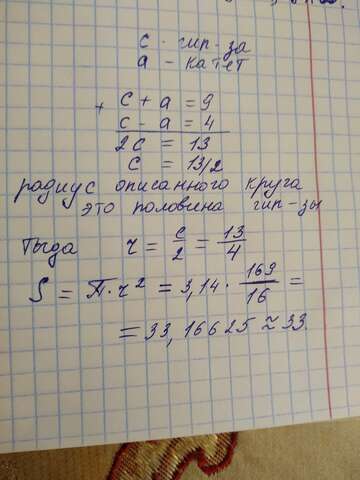 с - гип-за
а - катет
+ с + а = 9
с - а = 4
2с = 13
с = 13/2
радиус описанного круга
это половина гип-зы
Тыда r = c/2 = 13/4
S = П·r² = 3,14 · 169/16 =
= 33,16625 ≈ 33.